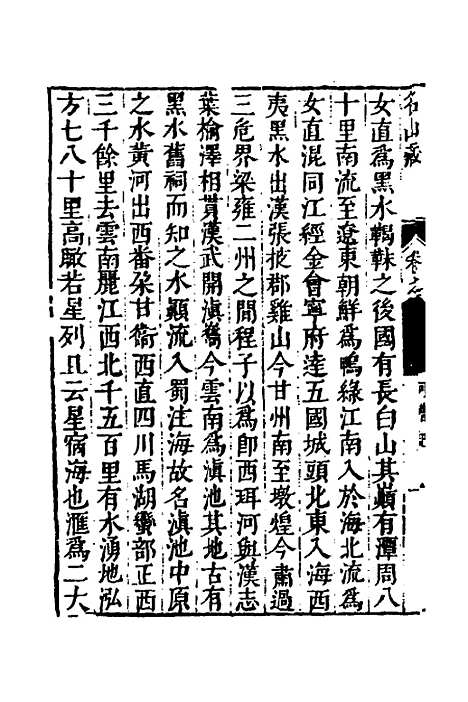 名山藏
卷之
一
女直爲黑水鞨靺之後國有長白山其巔有潭周八
十里南流至遼東朝鮮爲鴨綠江南入於海北流爲
女直混同江經金會寧府達五國城頭北東入海西
夷黑水出漢張掖郡雞山今甘州南至燉煌今肅過
三危界梁雍二州之間程子以爲卽西珥河與漢志
葉榆澤相貫漢武開滇嶲今雲南爲滇池其地古有
黑水舊祠而知之水顚流入蜀注海故名滇池中原
之水黃河出西番朶甘衛西直四川馬湖蠻部正西
三千餘里去雲南麗江西北千五百里有水湧地泓
方七八十里高瞰若星列且云星宿海也滙爲二大